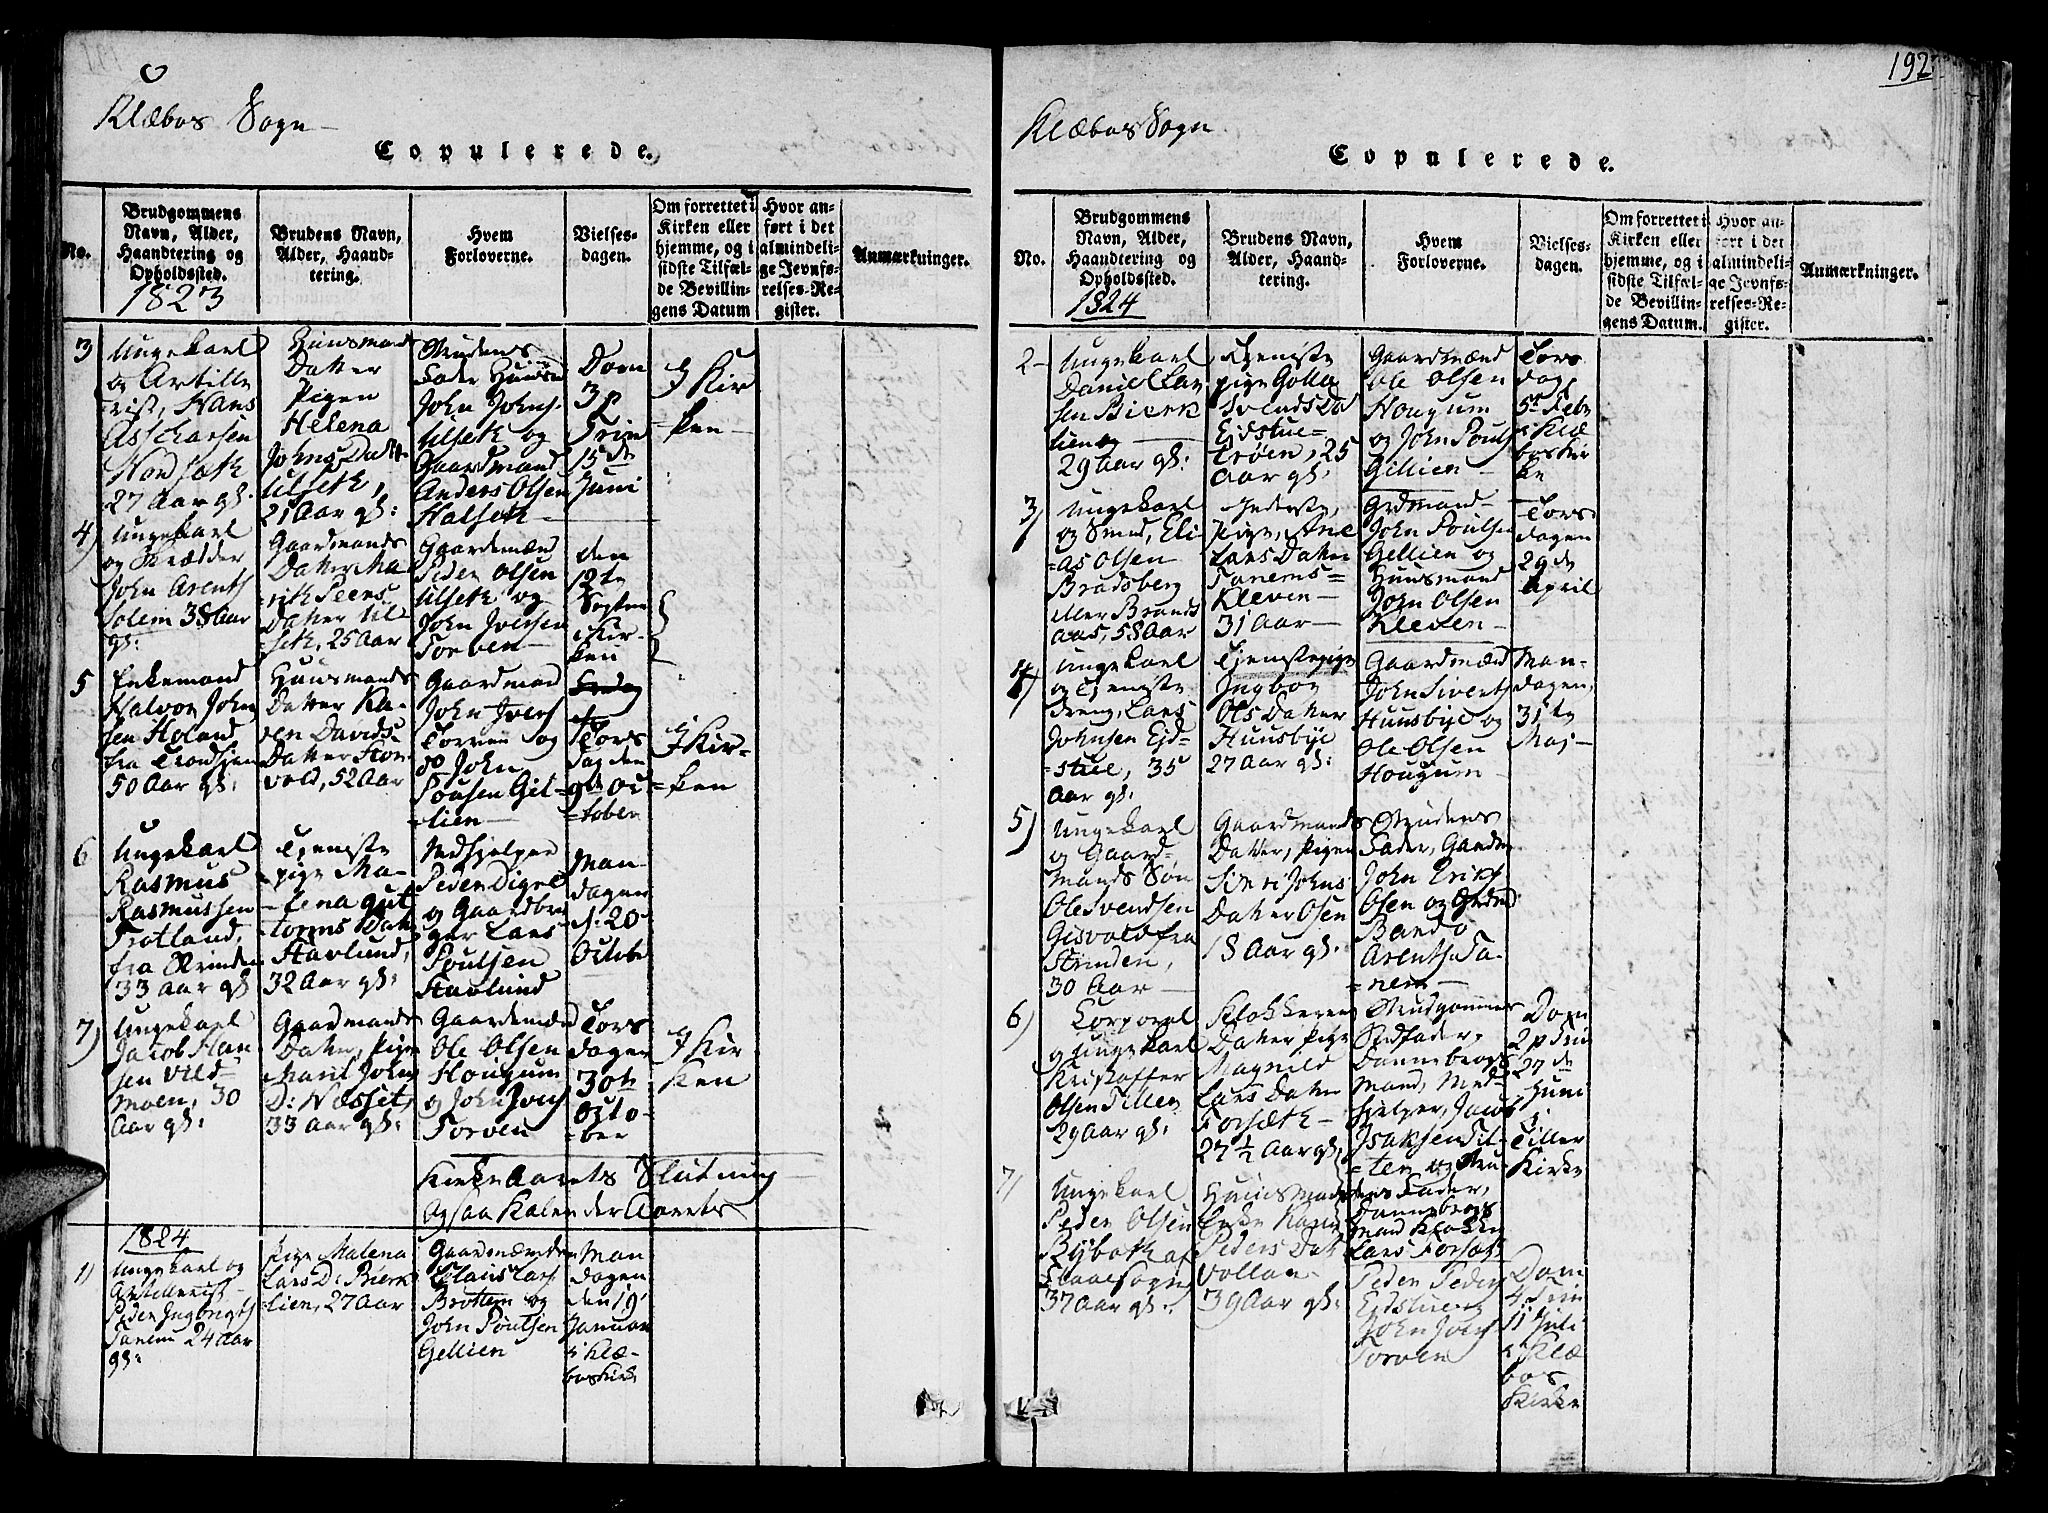 Klæbos Sogn
Copulerede.
No.
Brudgommens
Navn, Alder,
Haandtering og
Opholdssted.
1823
Brudens Navn,
Alder, Haand-
tering.
Hvem
Forloverne.
Vielses-
dagen.
Om forrettet i
Kirken eller
hjemme, og i
sidste Tilfæl-
de Bevillin-
gens Datum
Hvor an-
ført i det
almindeli-
ge Jevnfø-
relses-Re-
gister.
Anmærkninger.
3
Ungekarl
og Artille
rist, Hans
Nordsæth
27 Aar gl.
Huusmands
Datter
Pigen
Helena
Johns Datt
Ulseth,
21 Aar gl:
Brudens
Fader Huusm
John Johns.
Ulseth og
Gaardmand
Anders Olsen
Halseth
Dom
3 p
Trin
15 de
Juni
I Kir
ken
4)
Ungekarl
og Skrædder
John Arents
Solem 38 Aar
gl:
Gaardmands
Datter Ma
rit Peers
Datter Ul
seth, 25 Aar
Gaardmænd
Peder Olsen
Ulseth og
John Iversen
Torven
den
12te
Septem
i Kir-
ken
5
Enkemand
Halvor John
sen Holand
fra Trondhjem
50 Aar gl:
Huusmands
Datter Ka-
ren Davids
Datter Hon
vold, 52 Aar
Gaardmand
John Ivers
Torven og
do John
Poulsen Gel-
lien
Tors
dag den
9de Oc
tober
I Kir-
ken
6
Ungekarl
Rasmus
Rasmussen
Trotland,
fra Strinden
33 Aar gl
Tjeneste
pige Ma-
lena Gut
torms Datt
Havlund,
32 Aar gl:
Medhjelper
Peder Digre
og Gaardbru
ger Lars
Poulsen
Havlund
Man
dagen
d: 20
Octobr
7)
Ungekarl
Jacob Han
sen Vild-
moen, 30
Aar gl:
Gaardmands
Datter, Pigen
Marit John
D: Næsset,
33 Aar gl:
Gaardmænd
Ole Olsen
Hougum
og John Ivers
Torven
Tors
dagen
30te
Octo-
ber
I Kir
ken
Kirke Aarets Slutning
Ogsaa Kalender Aarets
1824
1)
Ungekarl og
Artillerist
Peder Ingbrigts
Tanem 24 Aar
gl:
Pige Malena
Lars D: Bierk
lien, 27 Aar
Gaardmændene
Claus Lars
Brottem og
John Poulsen
Gellien
Man
dagen
den 19
Januar
i Klæ-
bos Kirke
192
Klæbos Sogn
Copulerede.
No.
Brudgommens
Navn, Alder,
Haandtering og
Opholdssted.
1824
Brudens Navn,
Alder, Haand-
tering.
Hvem
Forloverne.
Vielses-
dagen.
Om forrettet i
Kirken eller
hjemme, og i
sidste Tilfæl-
de Bevillin-
gens Datum.
Hvor an-
ført i det
almindeli-
ge Jevnfø-
relses-Re-
gister.
Anmærkninger.
2
Ungekarl
Daniel Lar
sen Bierk
lien
29 Aar gl:
Tjeneste
pige Golla
Svends Da
Eidstue-
trøen, 25
Aar gl:
Gaardmænd
Ole Olsen
Hougum
og John Pouls
Gellien
Tors
dag
5te Febr
i Klæ
bos Kir
ke
3)
Ungekarl
og Smed, Eli
as Olsen
Bradsberg
eller Brands
aas, 58 Aar
Inderste
Pige, Ane
Lars Datter
Tanems-
Kleven
31 Aar
Grdmand
John Poulsen
Gellien og
Huusmand
John Olsen
Kleven
Tors
dagen
29 de
April
4)
Ungekarl
og Tjeneste
dreng, Lars
Johnsen Eid-
stue, 35
Aar gl:
Tjenestepige
Ingbor
Ols Datter
Huusbye
27 Aar gl:
Gaardmænd
John Siverts
Huusbye og
Ole Olsen
Hougum
Man-
dagen,
31te
Maj
5)
Ungekarl
og Gaard-
mands Søn
Ole Svendsen
Gisvold fra
Strinden,
30 Aar
Gaardmands
Datter, Pigen
Siri Johns
Datter Osen
18 Aar gl:
Brudens
Fader, Gaardm
John Eriks
Osen og Grdmd
Bardo
Arents. Ta-
nem
6)
Corporal
og Ungekarl
Kristoffer
Olsen Tillen
29 Aar gl:
Klokkerens
Datter Pige
Magnild
Lars Datter
Forsæth
27 ½ Aar gl.
Brudgommens
Stedfader,
Dannebrogs
Mand, Med-
hjelper, Jacob
Isaksen Til-
ler og Bru
dens Fader,
Dannebrogs
mand Klokker
Lars Forsæth
Dom
2 p Trin
27 de
Juni
i
Tiller
Kirke
7)
Ungekarl
Peder Olsen
Byboth af
Flaae Sogn
37 Aar gl:
Huusmands
Enke Karen
Peders Datt
Vollan
39 Aar gl:
Peder Peders
Eidstue og
John Ivers
Torven
Dom
4 Trin
11 Juli
i Klæ
bos
Kirke